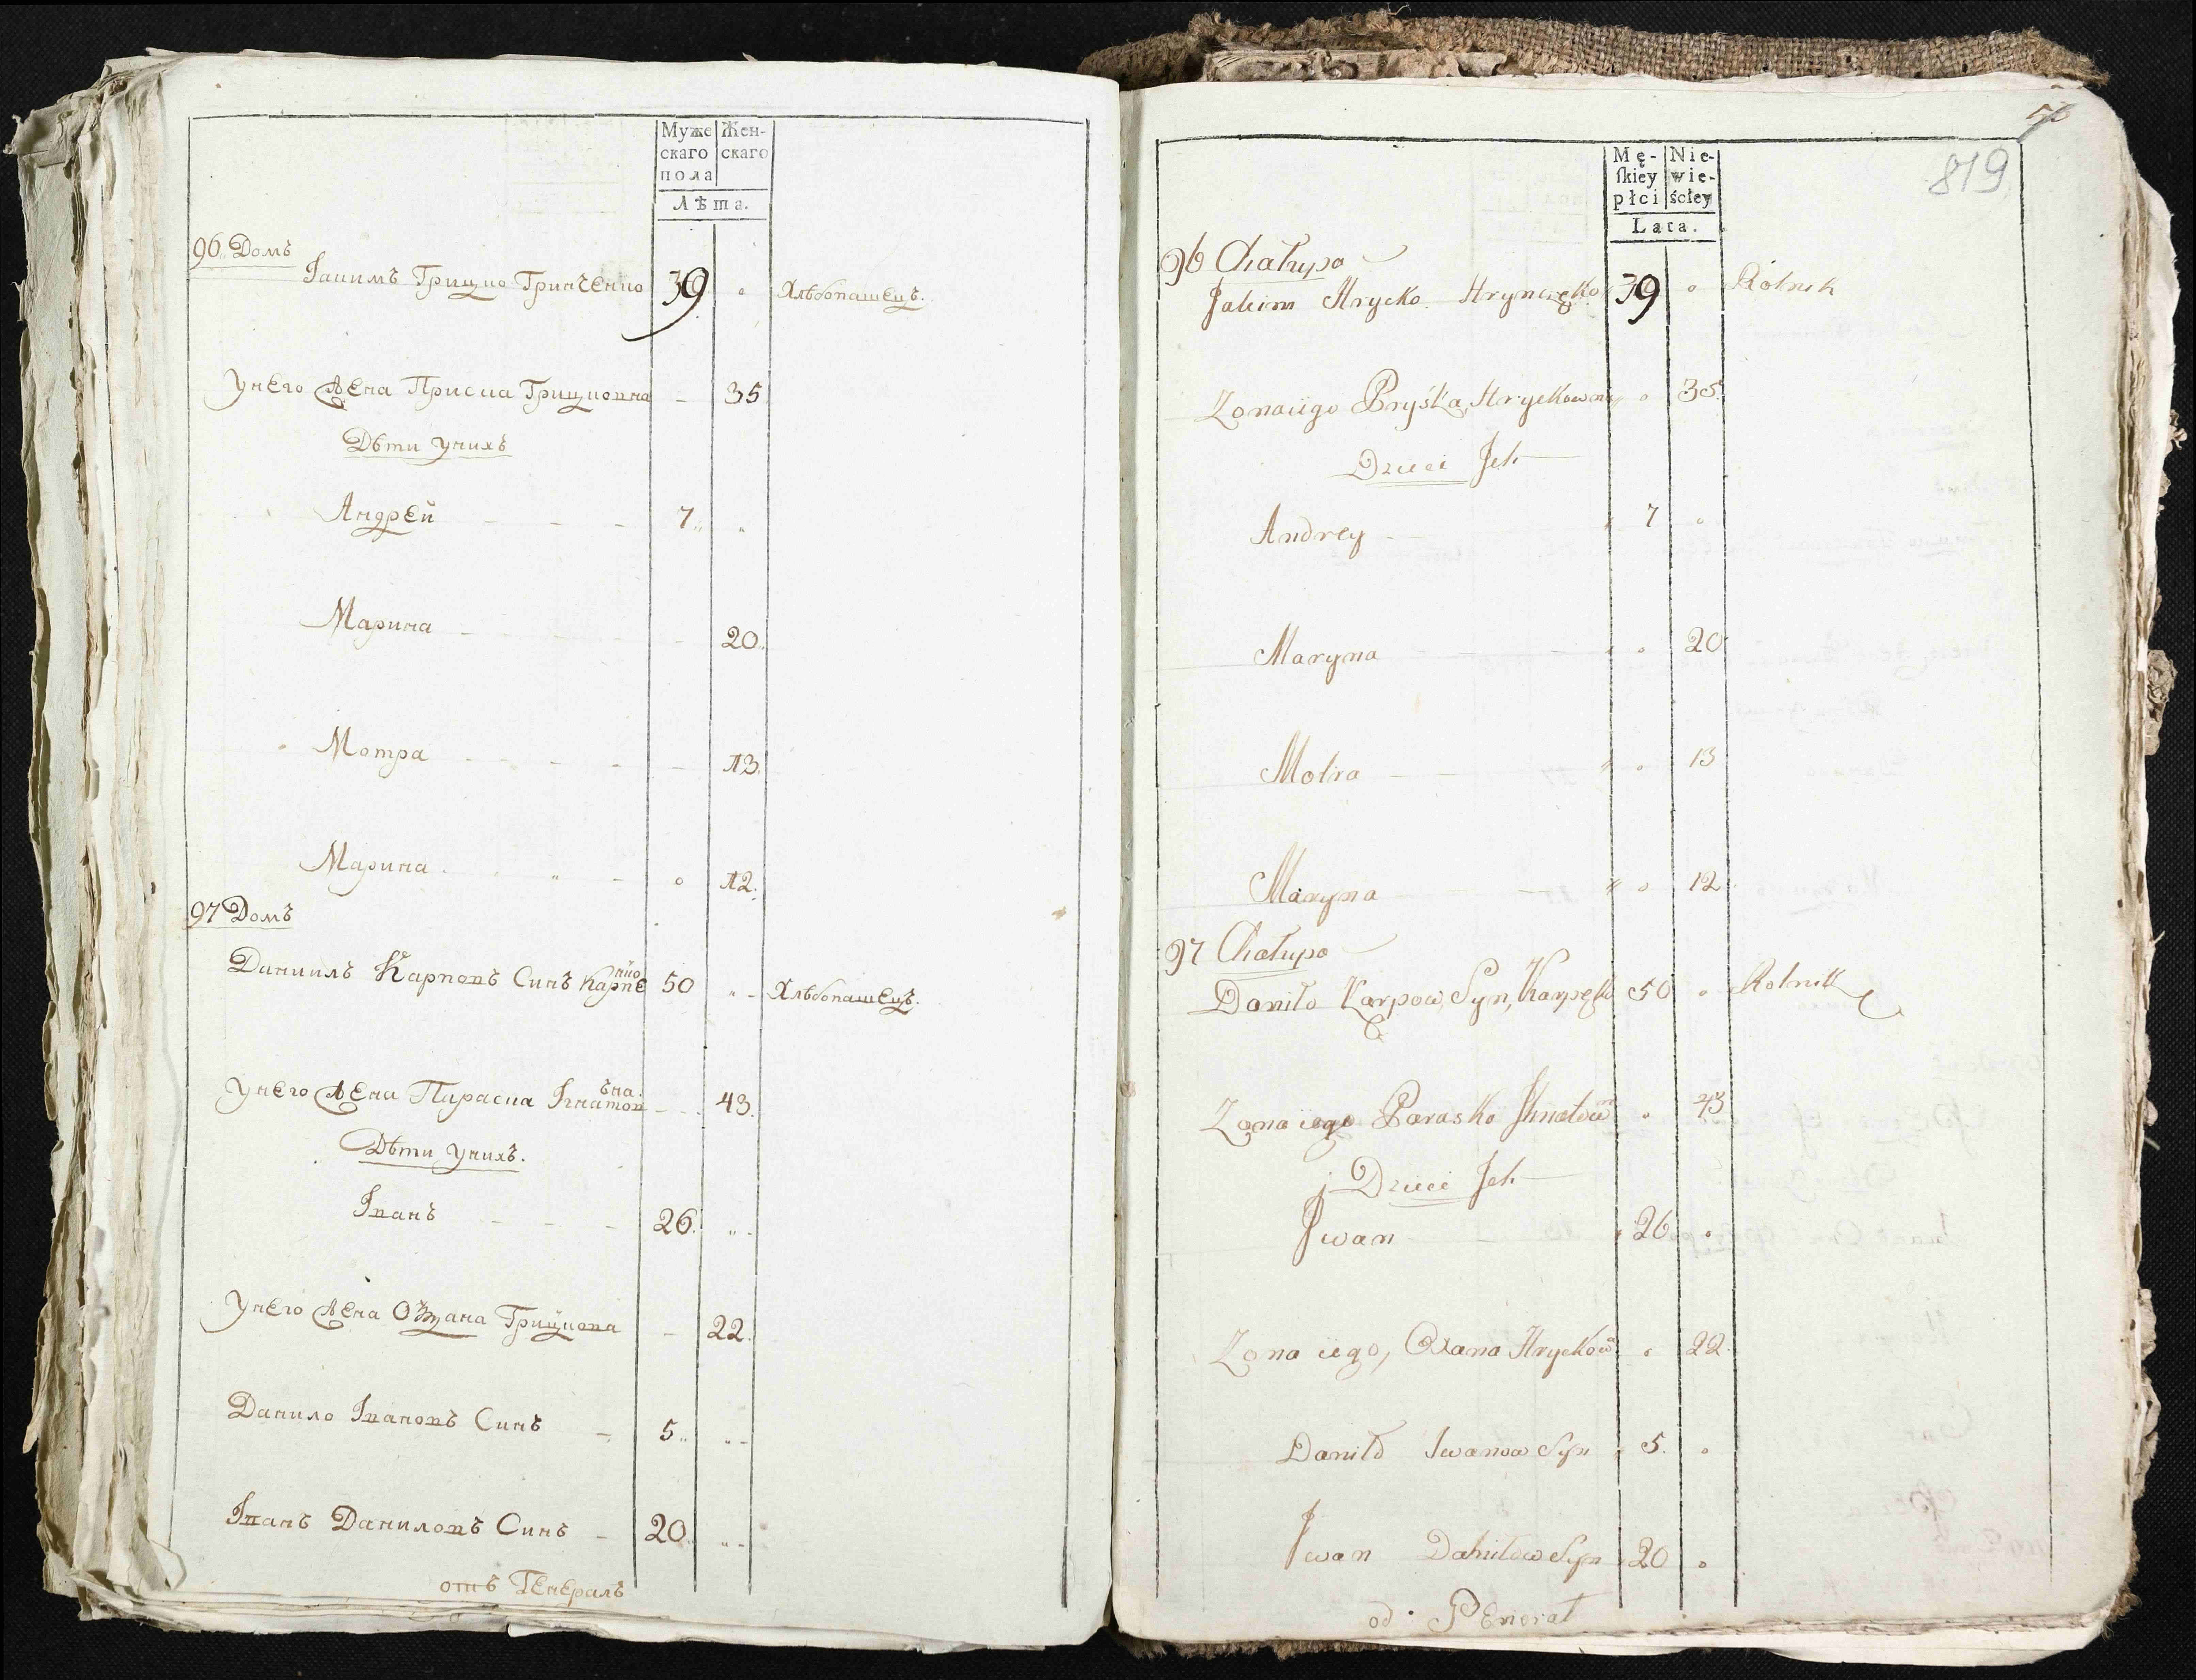 Муже Жен-
скаго скаго
пола
Лѣта.
96 Домъ
Іакимъ Грицко Гринченко 39 „ Хлѣбопашецъ.
У него жена Приска Грицковна - 35
Дѣти у нихъ
Андрей - - - 7 „
Марина - 20.
Мотра - - - 13.
Марина . „ - 12.
97 Домъ
Даниилъ Карповъ Синъ Карпенко 50 „ - Хлѣбопашецъ.
У него жена Параска Ігнатовна - 43.
Дѣти у нихъ.
Іванъ - - - 26. „ -
У него жена Оѯана Грицкова - 22.
Данило Івановъ Синъ - 5 „ -
Іванъ Даниловъ Синъ - 20 „ -
отъ Генералъ
819
Mę- Nie-
ſkiey wie-
płci ściey
Lata.
96 Chałupa
Jakim Hrycko Hrynczęko 39 „ Rolnik
Zona iego Pryśka Hryckowna „ 35
Dzieci Jch
Andrey - 7 „
Maryna - „ 20
Motra - „ 13
Maryna - „ 12
97 Chałupa
Daniło Karpow, Syn, Karpęko 50 „ Rolnik
Zona iego Paraska Ihnatow „ 43
Dzieci Jch
Jwan 26 „
Zona iego, Oxana Hryckow „ 22
Daniło Iwanow Syn 5. „
Jwan Daniłow Syn 20 „
od Generał